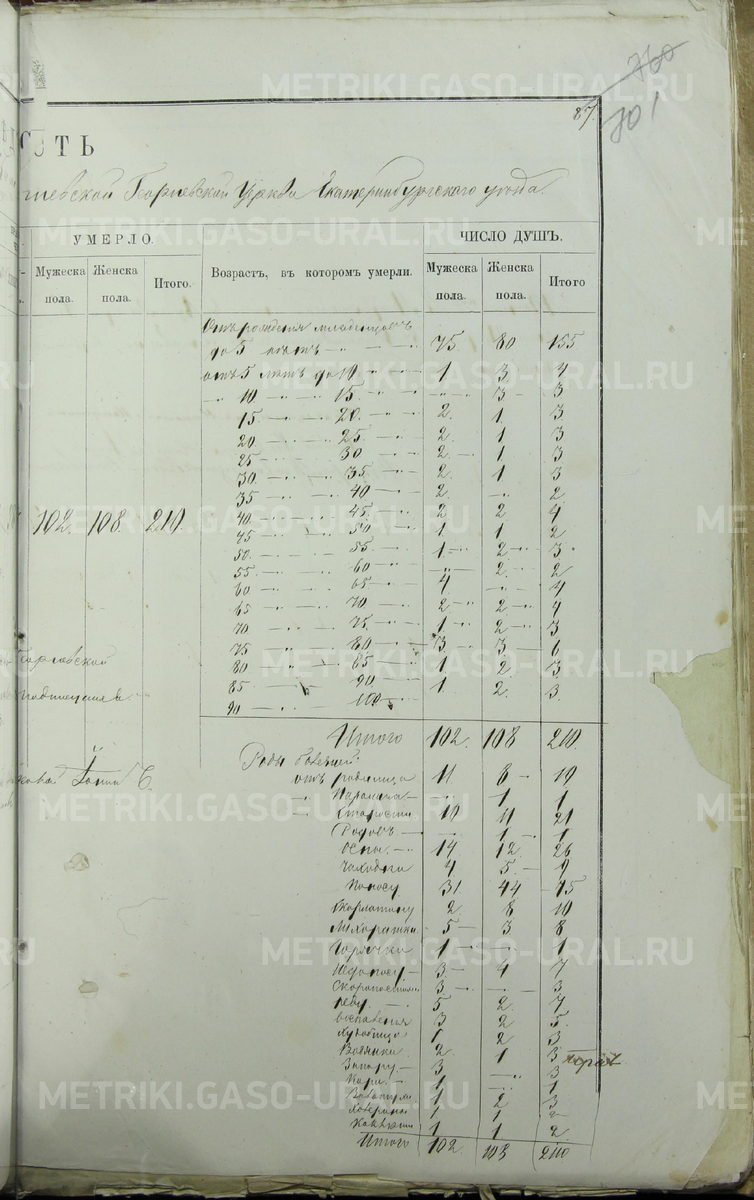 760
701
87.
СТЬ
Георгиевской Церкви Екатеринбургскаго уезда.
УМЕРЛО.
ЧИСЛО ДУШЪ.
Мужеска пола. Женска пола. Итого. Возрастъ, въ которомъ умерли. Мужеска пола. Женска пола. Итого
Отъ рождения младенцовъ
до 5 летъ 75 80 155
отъ 5 летъ до 10 1 3 4
10 15 3 3
15 20 2 1 3
20 25 2 1 3
25 30 2 1 3
30 35 2 1 3
35 40 2 2
40 45 2 2 4
102 108 210
45 50 1 1 2
50 55 1 2 3
55 60 2 2
60 65 4 4
65 70 2 2 4
70 75 1 2 3
75 80 3 3 6
80 85 1 2 3
85 90 1 2 3
90 100
Итого 102 108 210
Роды болезней:
отъ родимца 11 8 19
1 1
Старости 10 11 21
Родовъ 1 1
Оспы 14 12 26
Чахотки 4 5 9
Поносу 31 44 75
Скорлатину 2 8 10
Лихорадки 5 3 8
Горячки 1 1
3 4 7
3 3
5 2 7
воспаления 3 2 5
1 2 3
Водянки 2 1 3
Запору 3 3
Кори 1 1
1 2 3
1 1 2
1 1 2
Итого 102 108 210
METRIKI.GASO-URAL.RU
METRIKI.GASO-URAL.RU
METRIKI.GASO-URAL.RU
METRIKI.GASO-URAL.RU
METRIKI.GASO-URAL.RU
METRIKI.GASO-URAL.RU
METRIKI.GASO-URAL.RU
METRIKI.GASO-URAL.RU